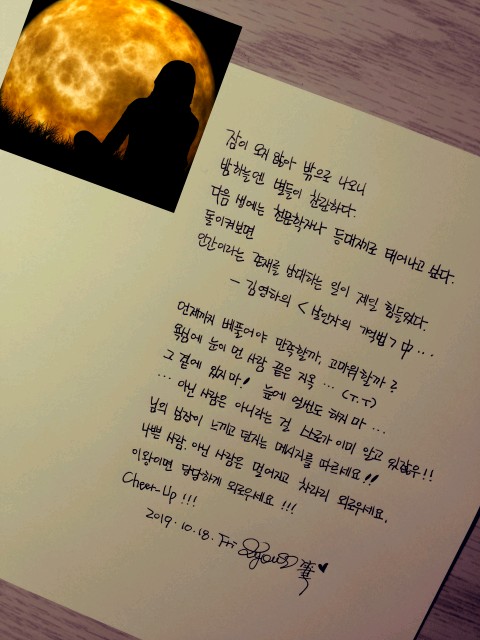 잠이 오지 않아 밖으로 나오니
밤하늘엔 별들이 찬란하다.
다음 생에는 천문학자나 등대지기로 태어나고 싶다.
돌이켜보면
인간이라는 존재를 상대하는 일이 제일 힘들었다.
- 김영하의 <살인자의 기억법> 中...
언제까지 베풀어야 만족할까, 고마워할까?
욕심에 눈이 먼 사람 끝은 지옥... (T.T)
그 곁에 있지마! 늪에 얼씬도 하지 마...
... 아닌 사람은 아니라는 걸 스스로가 이미 알고 있잖우!!
님의 심장이 느끼고 던지는 메시지를 따르세요!!
나쁜 사람. 아닌 사람은 멀어지고 차라리 외로우세요.
이왕이면 당당하게 외로우세요!!!
Cheer-Up!!!
2019. 10. 18. Fri